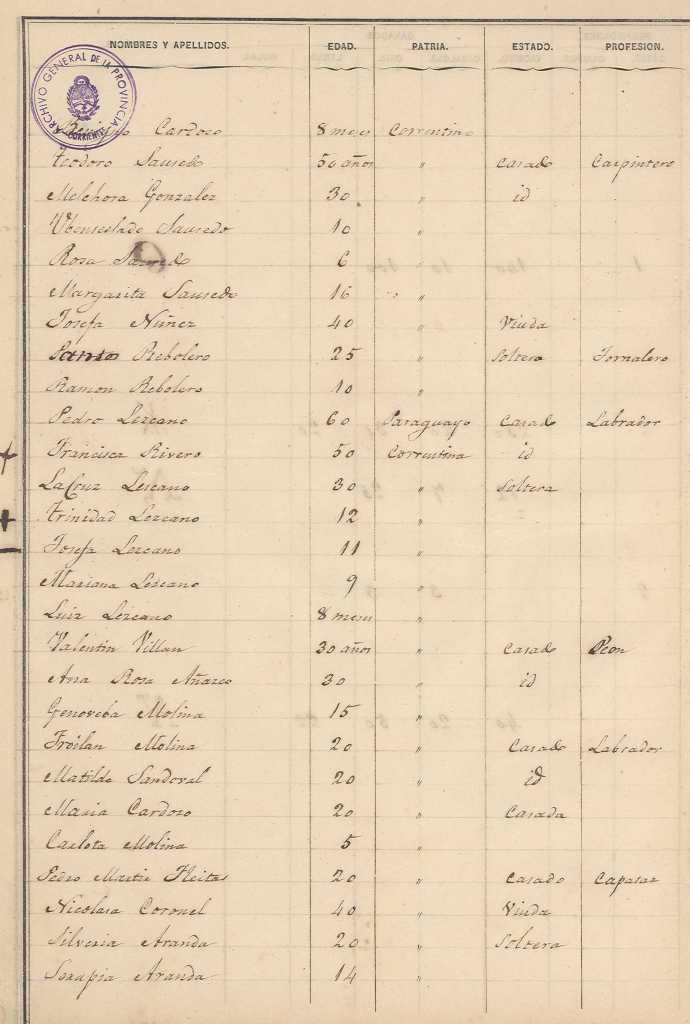 NOMBRES Y APELLIDOS. EDAD. PATRIA. ESTADO. PROFESION.
ARCHIVO GENERAL DE LA PROVINCIA
CORRIENTES
Cardoso 8 meses Correntino
Teodoro Sausedo 50 años " Casado Carpintero
Melchora Gonzalez 30 " id
Wenseslado Sausedo 10 "
Rosa Sausedo 6 "
Margarita Sausedo 16 "
Josefa Nuñez 40 " Viuda
Rebolero 25 " Soltero Jornalero
Ramon Rebolero 10 "
Pedro Lezcano 60 Paraguayo Casado Labrador
Francisca Rivero 50 Correntina id
La Cruz Lescano 30 " Soltera
Trinidad Lezcano 12 "
Josefa Lezcano 11 "
Mariana Lescano 9 "
Luiz Lezcano 8 meses "
Valentin Villan 30 años " Casado Peon
Ana Rosa Añasco 30 " id
Genoveba Molina 15 "
Froilan Molina 20 " Casado Labrador
Matilde Sandoval 20 " id
Maria Cardoso 20 " Casada
Carlota Molina 5 "
Pedro Fleitas 20 " Casado Capasar
Nicolasa Coronel 40 " Viuda
Silveria Aranda 20 " Soltera
Serapia Aranda 14 "